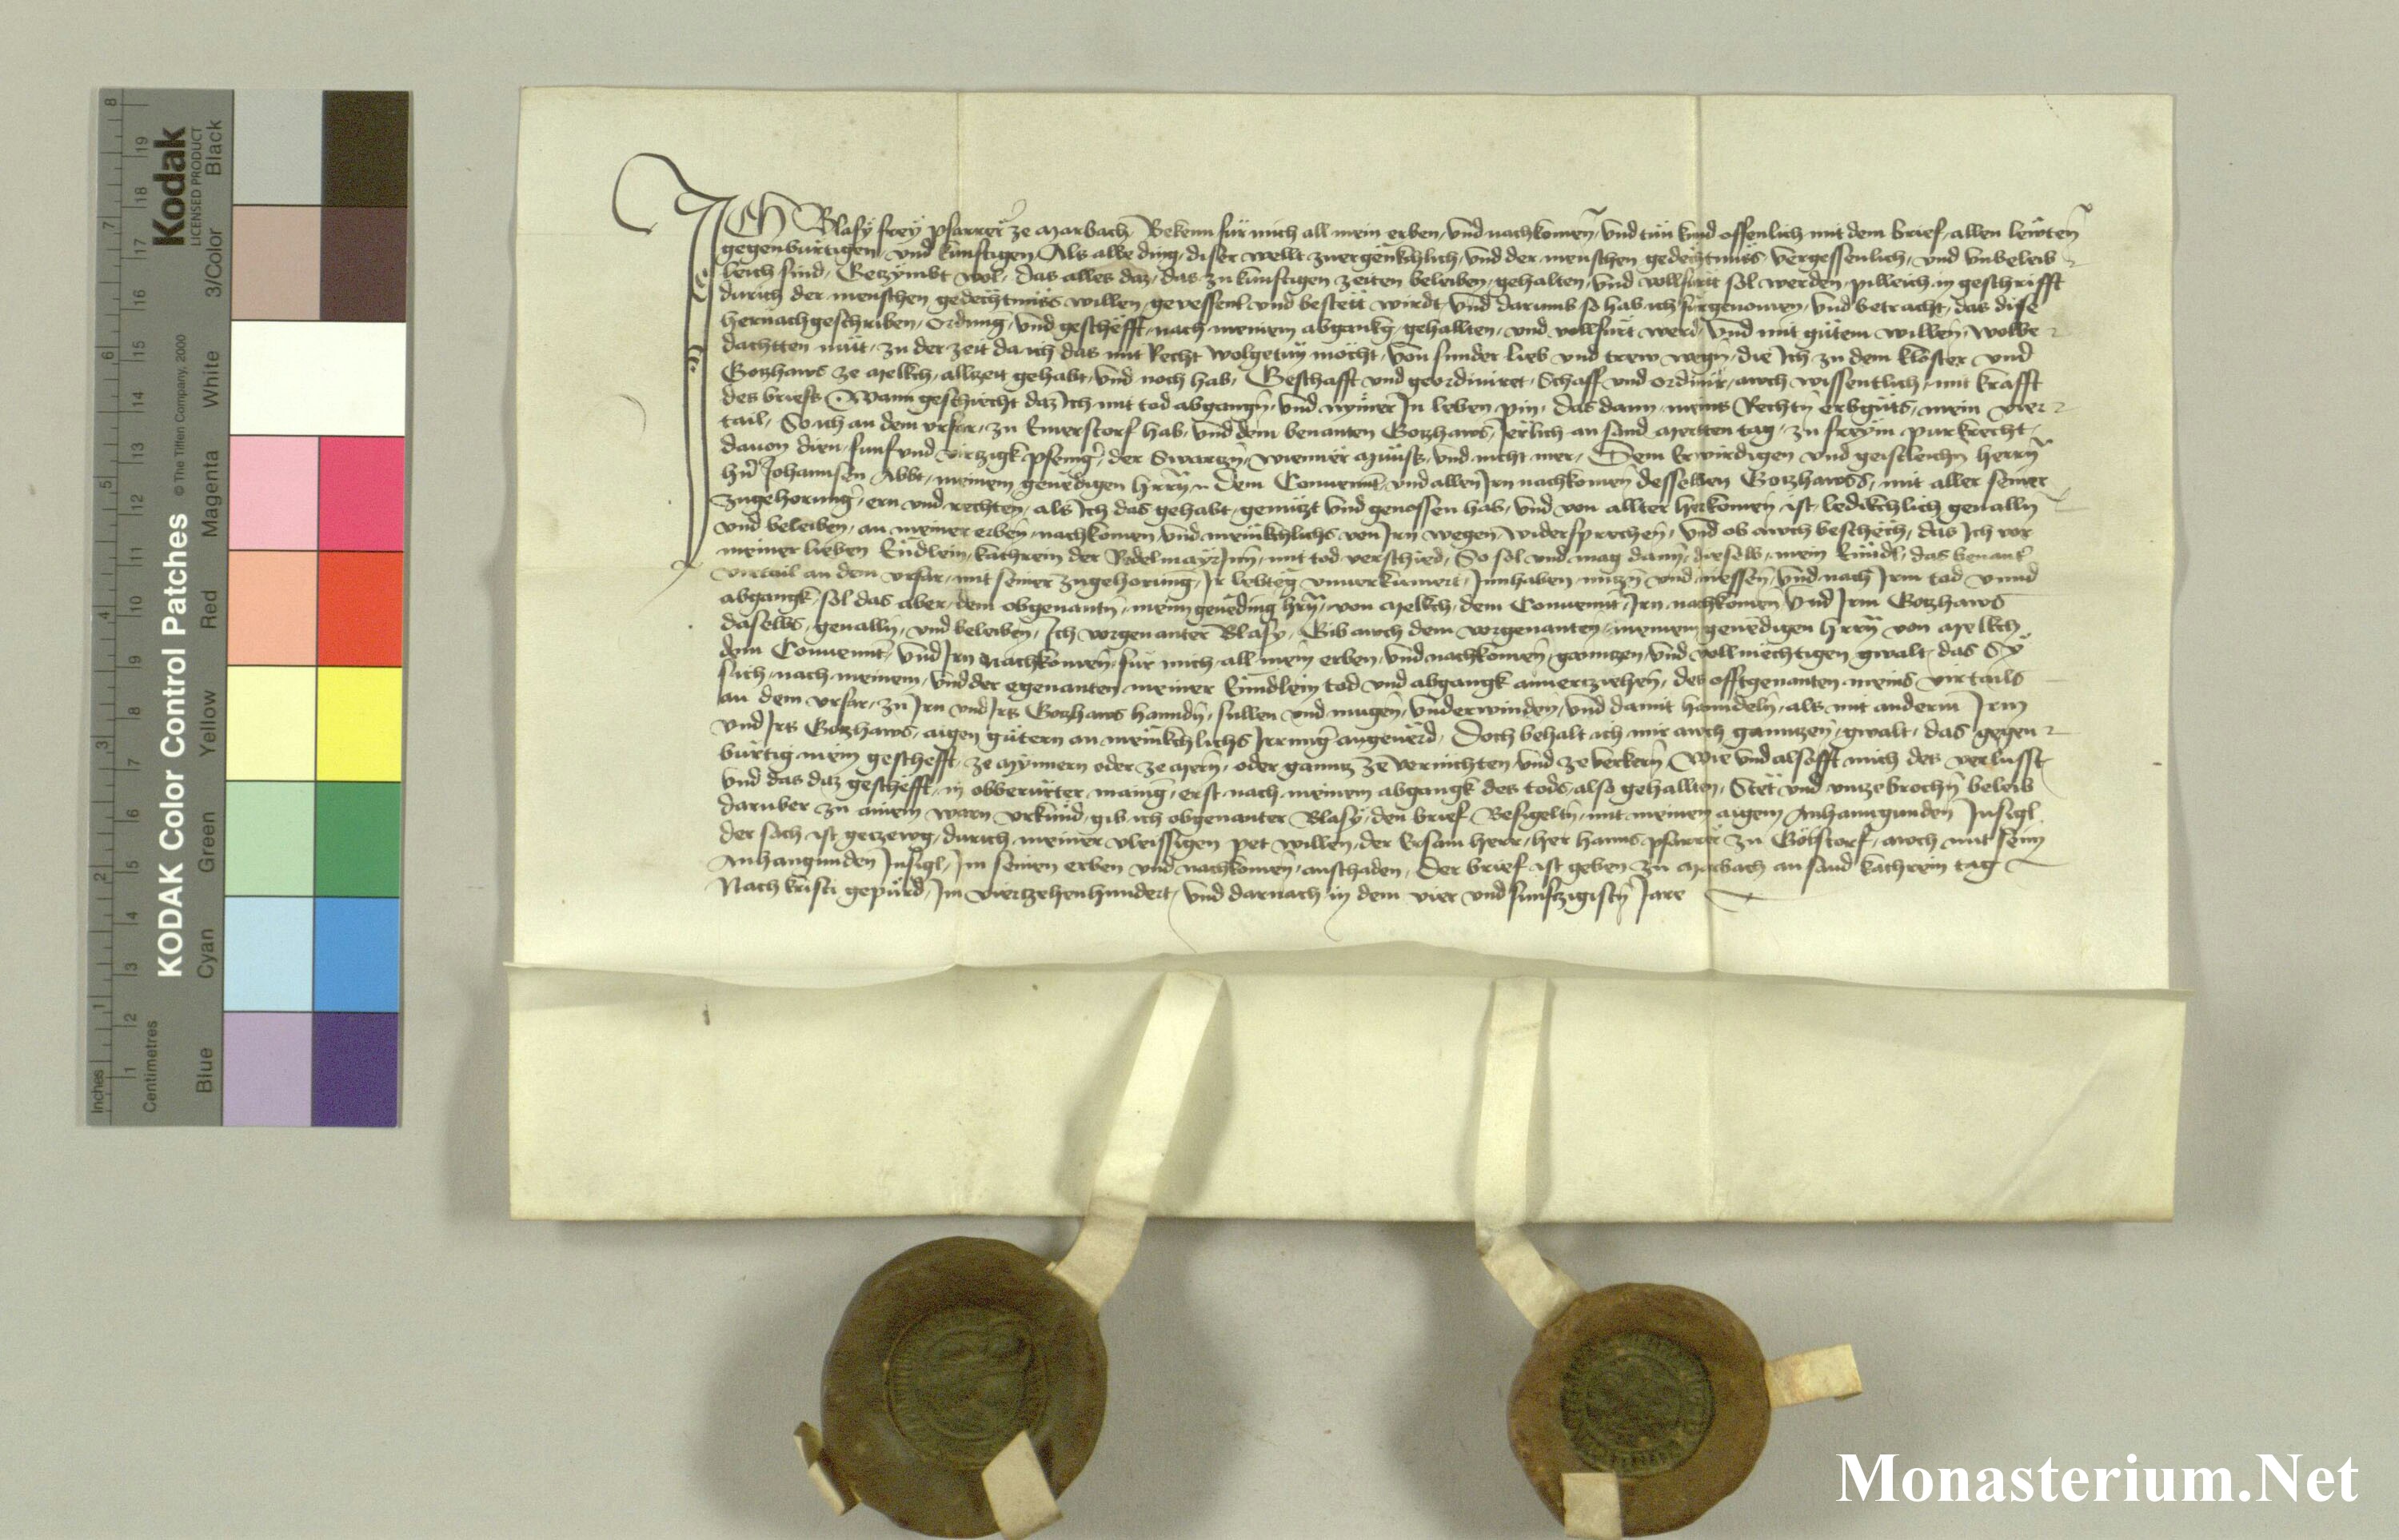 Ich Blasÿ freÿ pfarrer ze Marbach Bekenn für mich all mein erben, und nachkomen, und tun kund offenlich mit dem brief, allen lewten
gegenburtigen, und kunftigen, Als alle ding, diser wellt zuergenkchlich, und der menschen gedechtnuss vergessenlich, und unbeleib
leich sind, Geczÿmbt wol, das alles daz, das zu kunftigen zeiten beleiben, gehalten, und vollfurt sol werden, pilleich in geschrifft
durich der menschen gedechtnuss willen, geuessent und bestett wirdt, und darumb so hab ich furgenomen, und betracht, das dise
hernachgeschriben, ordnung, und geschefft, nach meinem abgankg, gehallten, und vollfurt werd, und mit gutem willen, wolbe
dachtten mut, zu der zeit da ich das mit Recht wolgetun mocht, von sunder lieb und trew wegn, die Ich zu dem kloster und
Gotzhaws ze Melkch, allzeit gehabt, und noch hab, Geschafft und geordiniret, Schaff und ordinir, auch wissentlich, mit krafft
des briefs, Wann geschiecht daz Ich mit tod abgangn, und nymer In leben pin, das dann meins Rechtn erbguts, mein vier
tail, So ich an dem urfar, zu Emerstorf hab, und dem benanten Gotzhaws, Jerlich an sand Mertten tag, zu freym purkrecht,
dauon dien, funf und virczigk pfening, der Swarczn, wienner Munss, und nicht mer, Dem Erwirdigen und geistleichn herrn
hern Johannsen Abbt, meinem genedigen herrn, Dem Conuennt, und allen Irn nachkomen desselben Gotzhawss, mit aller seiner
zugehorung, ern und rechten, als Ich das gehabt, genutzt und genossen hab, und von allter herkomen ist, ledikchlich geualln
und beleiben, an meiner erben, nachkomen und menikchlichs von Irn wegen, widersprechen, und ob auch beschech, das Ich vor
meiner lieben Endlein, kathrein der RedelmayrInn, mit tod verschied, So sol und mag dann, dieselb, mein Endl, das benant
virtail an dem urfar, mit seiner zugehorung, Ir lebteg unuerkumert, Innhaben, nutzn und niessen, und nach Irm tod unnd
abgangk, sol das aber, dem obgenantn, meim geneding hern, von Melkch, dem Conuennt, Irn nachkomen und Irm Gotzhaws
daselbs, geualln, und beleiben, Ich vorgenanter Blasy, Gib auch dem vorgenanten, meinem genedigen herrn von Mellkch
dem Conuennt, und Irn Nachkomen, fur mich, all mein erben, und nachkomen, ganntzen, und vollmechtigen gwalt, das Sÿ
sich, nach meinem, und der egenanten meiner Enndlein tod und abgangk anuerziehen, des offtgenanten meins virtails
an dem urfar, zu Irn und Irs Gotzhaws hanndn, sullen und mugen, underwinden, und damit hanndeln, als mit anderm Irm
und Irs Gotzhaws, aigen gutern an menikchlichs Irrung angeuerd, Doch behalt ich mir auch ganntzen, gwalt, das gegen
burtig mein geschefft, ze Mynnern oder ze Mern, oder ganntz ze vernichten, und ze verkern, Wie und alsofft mich des verlusst
und das daz geschefft, in obberurter maing, erst nach meinem abgangk des tods, also gehallten, Stet und unzebrochn beleib
daruber zu ainem warn urkund, gib ich obgenanter Blasy, den brief Besigeltn, mit meinem aigem Anhanngunden Insigl,
der sach ist geczewg, durich meiner vleissigen pet willen, der Ersam herr, her hanns pfarrer zu Gotstorf, auch mit seim
Anhangunden Insigl, Im seinen erben und nachkomen, anschaden, Der brief ist geben zu Marbach an sand kathrein tag
Nach kristi gepurd, Im vierzehenhundert, und darnach in dem vier und funfczigistn Jare
KODAK Color Control Patches © The Tiffen Company, 2000
Kodak
LICENSED PRODUCT
Blue Cyan Green Yellow Red Magenta White 3/Color Black
Inches 1 2 3 4 5 6 7 8
Centimetres 1 2 3 4 5 6 7 8 9 10 11 12 13 14 15 16 17 18 19
Monasterium.Net